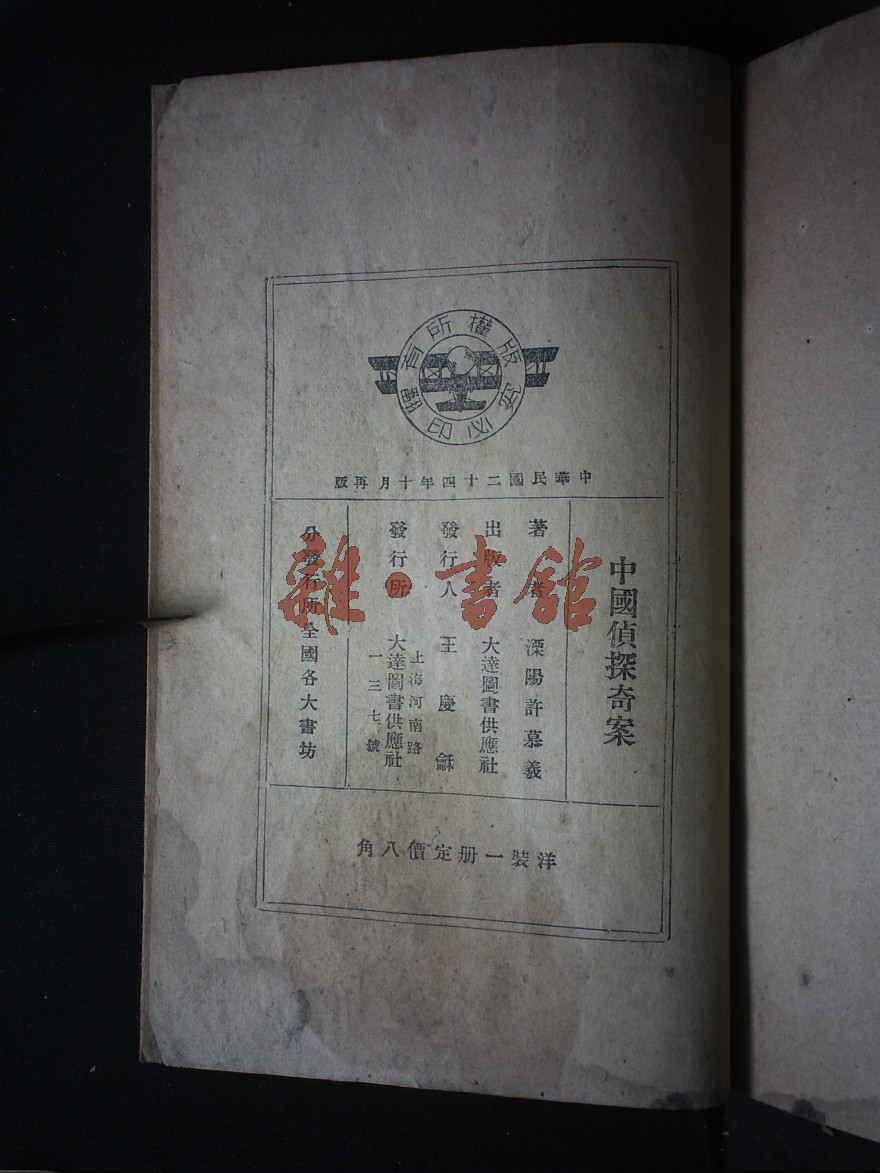 版權所有
翻印必究
中華民國二十四年十月再版
中國偵探奇案
著者 溧陽許慕義
出版者 大達圖書供應社
發行人 王慶龢
發行所 大達圖書供應社
上海河南路
一三七號
分發行所全國各大書坊
洋裝一册定價八角
雜·書館